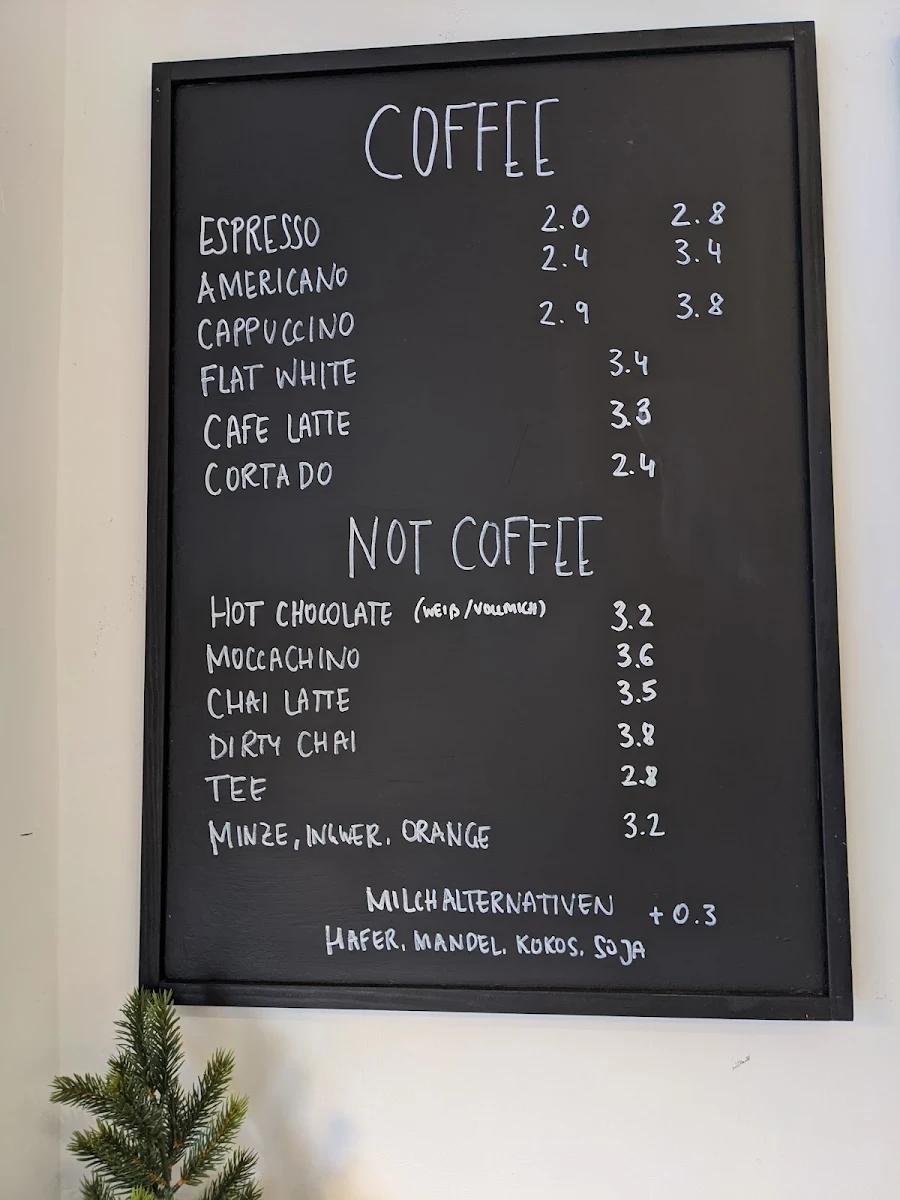 COFFEE
ESPRESSO 2.0 2.8
AMERICANO 2.4 3.4
CAPPUCCINO 2.9 3.8
FLAT WHITE 3.4
CAFE LATTE 3.8
CORTADO 2.4
NOT COFFEE
HOT CHOCOLATE (WEIß/VOLLMICH) 3.2
MOCCACHINO 3.6
CHAI LATTE 3.5
DIRTY CHAI 3.8
TEE 2.8
MINZE, INGWER, ORANGE 3.2
MILCHALTERNATIVEN + 0.3
HAFER, MANDEL, KOKOS, SOJA